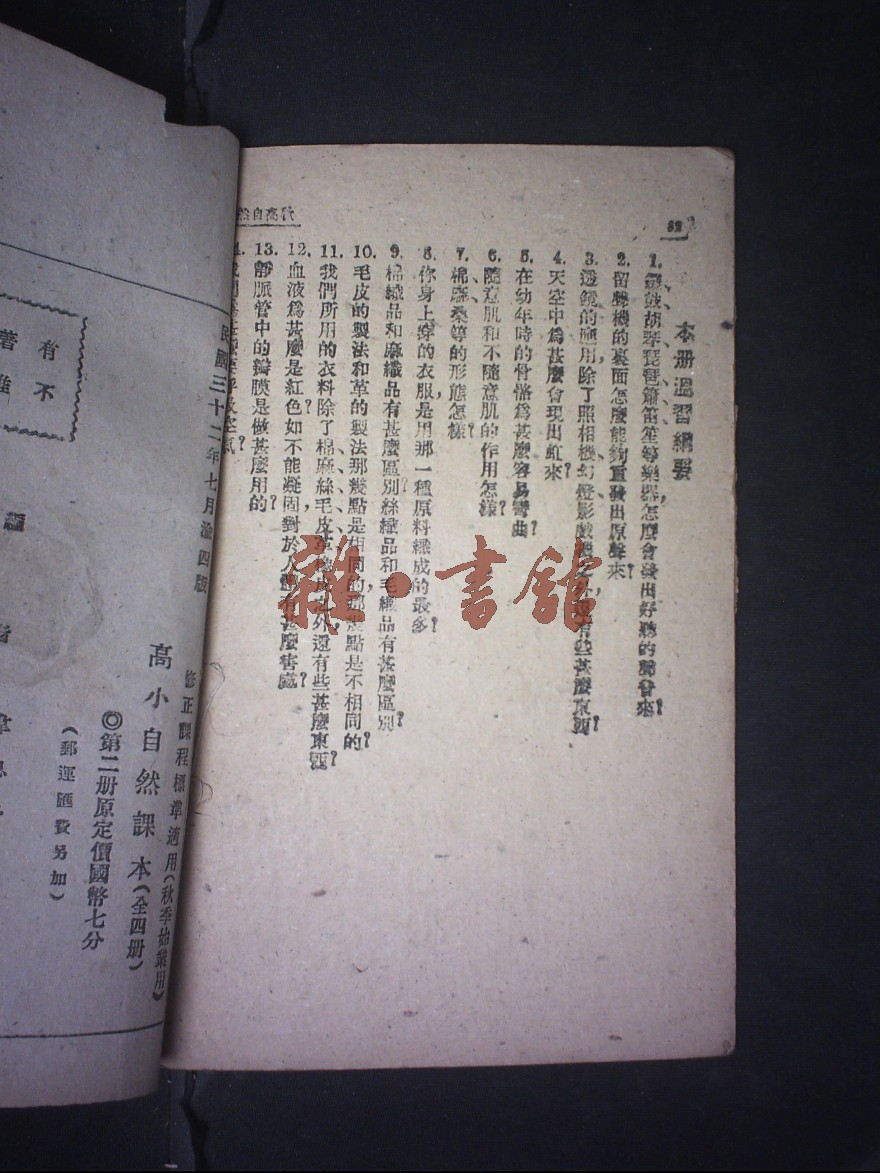 62
本册溫習綱要
1. 鑼、鼓、胡琴、琵琶、簫、笛、笙等樂器，怎麼會發出好聽的聲音來？
2. 留聲機的裏面，怎麼能夠重發出原聲來？
3. 透鏡的應用除了照相機、幻燈、影戲機之外，還有些甚麼東西？
4. 天空中爲甚麼會現出虹來？
5. 在幼年時的骨骼爲甚麼容易彎曲？
6. 隨意肌和不隨意肌的作用怎樣？
7. 棉、蔴、桑等的形態怎樣？
8. 你身上穿的衣服，是用那一種原料織成的最多？
9. 棉織品和麻織品有甚麼區別？絲織品和毛織品有甚麼區別？
10. 毛皮的製法和革的製法，那幾點是相同的，那幾點是不相同的？
11. 我們所用的衣料除了棉、麻、絲、毛、皮、革、橡皮之外，還有些甚麼東西？
12. 血液爲甚麼是紅色？如不能凝固，對於人體有甚麼害處？
13. 靜脈管中的瓣膜是做甚麼用的？
高自
民國三十二年七月渝四版
有不
著
修正課程標準適用（秋季始業用）
高小自然課本（全四册）
◎第二册原定價國幣七分
（郵運匯費另加）
雜·書館